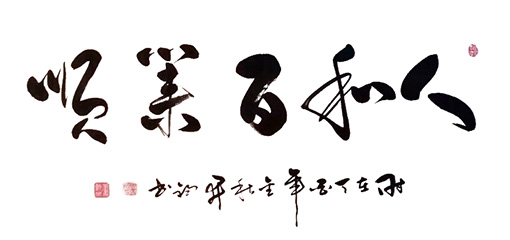 人和百業順
时在丁酉年金秋书